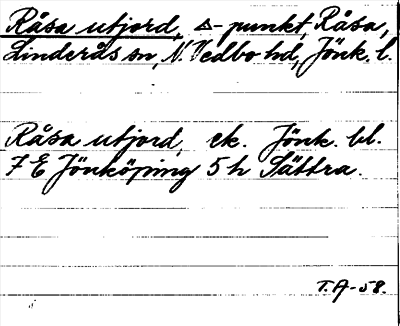 Råsa utjord, △-punkt, Råsa,
Linderås sn, N. Vedbo hd, Jönk. l.
Råsa utjord, ek. Jönk. bl.
7 E Jönköping 5 h Sättra.
T.A-58.